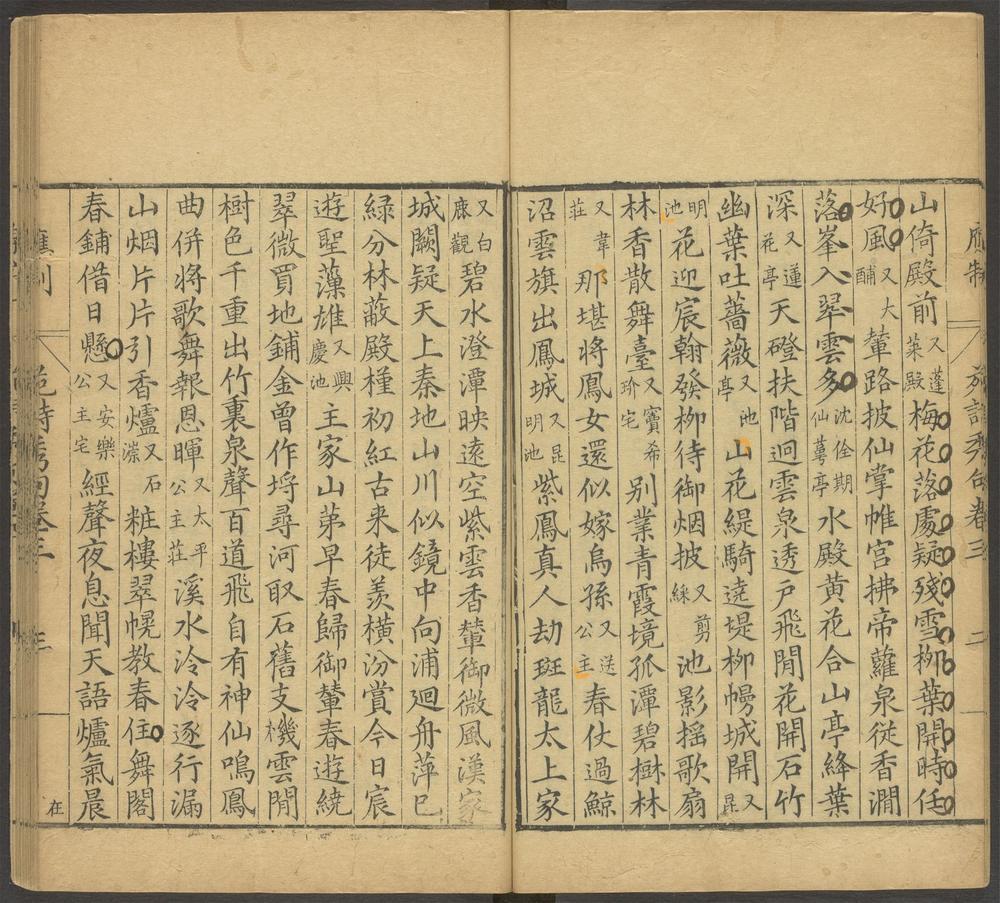 山倚殿前又蓬萊殿梅花落處疑殘雪柳葉開時任
好風又大酺輦路披仙掌帷宮拂帝蘿泉從香澗
落峯入翠雲多沈佺期仙萼亭水殿黃花合山亭絳葉
深又蓮花亭天磴扶階迥雲泉透戶飛閒花開石竹
幽葉吐薔薇又池亭山花緹騎遶堤柳幔城開又昆
明池花迎宸翰發柳待御烟披又剪綵池影搖歌扇
林香散舞臺又竇希玠宅別業青霞境孤潭碧樹林
又韋莊那堪將鳳女還似嫁烏孫又送公主春仗過鯨
沼雲旗出鳳城又昆明池紫鳳真人劫斑龍太上家
又白鹿觀碧水澄潭映遠空紫雲香輦御微風漢家
城闕疑天上秦地山川似鏡中向浦迴舟萍已
綠分林蔽殿槿初紅古來徒羡橫汾賞今日宸
遊聖藻雄又興慶池主家山苐早春歸御輦春遊繞
翠微買地鋪金曾作埒尋河取石舊支機雲間
樹色千重出竹裏泉聲百道飛自有神仙鳴鳳
曲併將歌舞報恩暉又太平公主莊溪水泠泠逐行漏
山烟片片引香爐又石淙粧樓翠幌教春住舞閣
春鋪借日懸又安樂公主宅經聲夜息聞天語爐氣晨
在